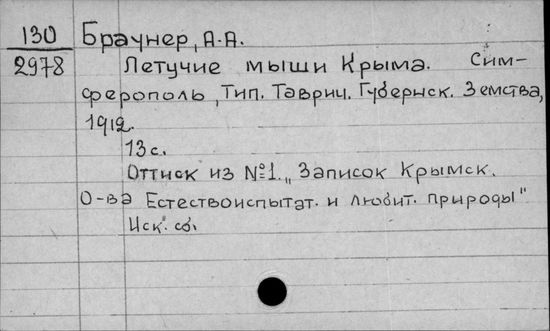 130 Браунер, А.А.
2978 Летучие мыши Крыма. Сим-
ферополь, Тип. Таврич. Губернск. Земства,
1912.
13 с.
Оттиск из №1. „Записок Крымск.
О-ва Естествоиспытат. и любит. природы"
Иск. сб.